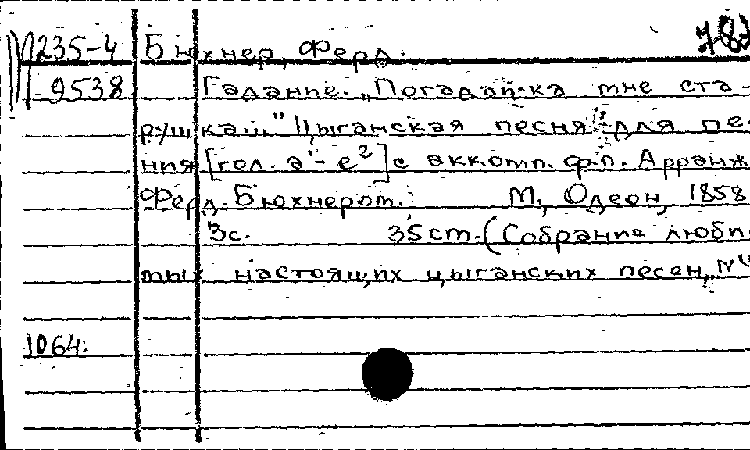 М235-4 Бюхнер, Ферд. 783
9538 Гадание. „Погадай-ка мне ста-
рушка..." Цыганская песня для пе-
ния [гол. a' - e²] с акком. ф.п. Арранж.
Ферд. Бюхнером. М, Одеон, 1858
3с. 35 ст. (Собрание люби-
мых настоящих цыганских песен, №4
1064.